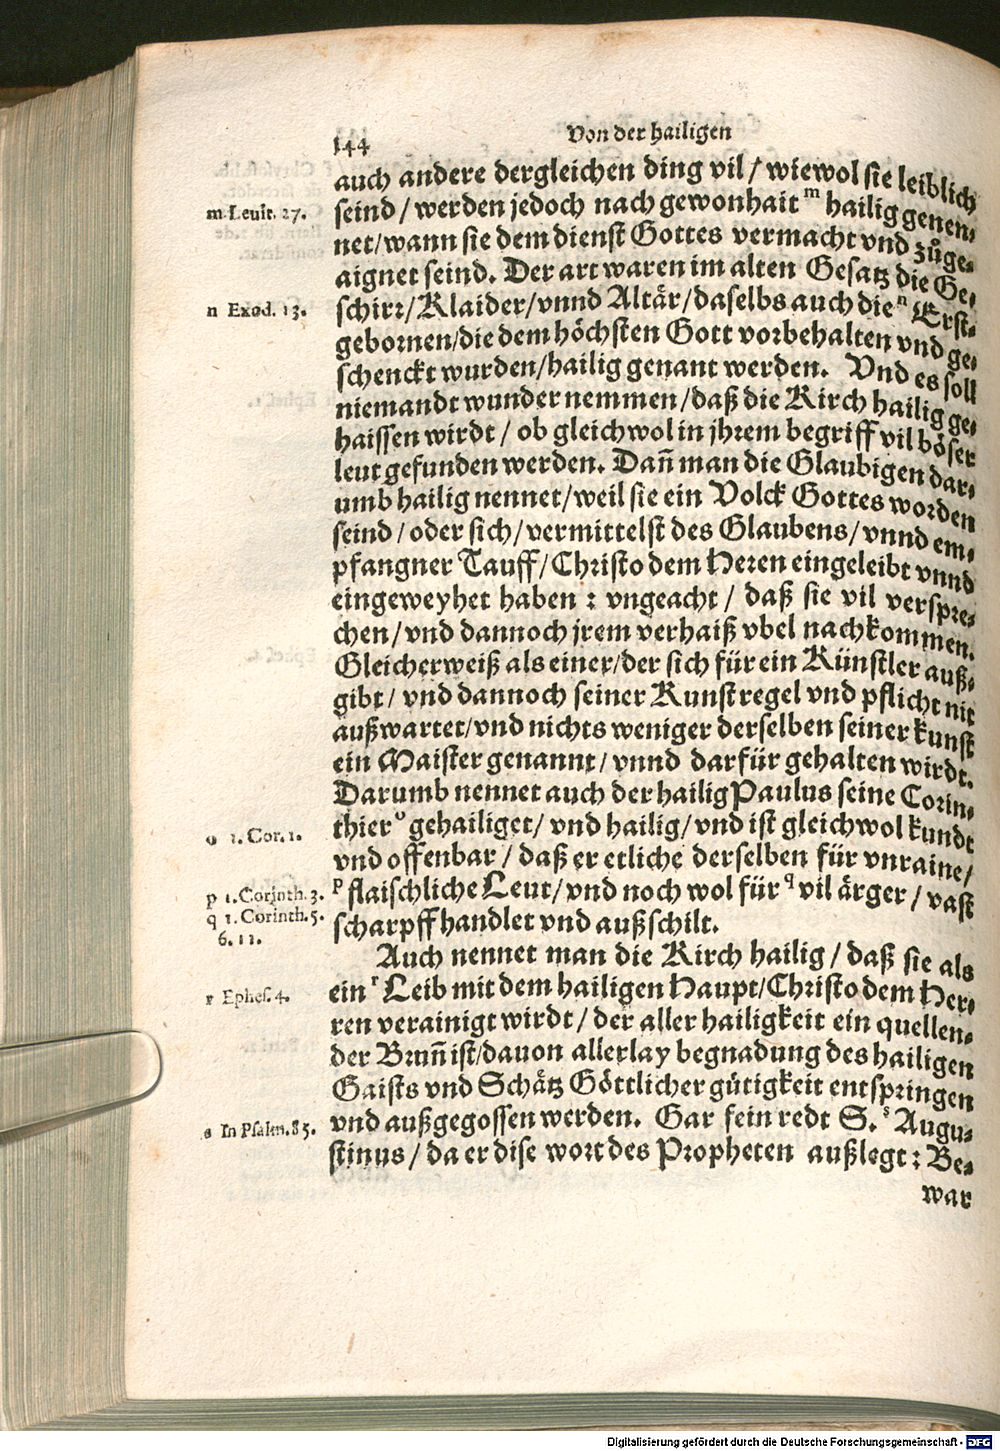 144
Von der hailigen
auch andere dergleichen ding vil / wiewol sie leiblich
m Leuit. 27.
seind / werden jedoch nach gewonhait m hailig genen⸗
net/wann sie dem dienst Gottes vermacht vnd zůge⸗
aignet seind. Der art waren im alten Gesatz die Ge⸗
n Exod. 13.
schirr/Klaider/vnnd Altär/daselbs auch die n Erst⸗
gebornen/die dem höchsten Gott vorbehalten vnd ge⸗
schenckt wurden/hailig genant werden. Vnd es soll
niemandt wunder nemmen/daß die Kirch hailig ge⸗
haissen wirdt / ob gleichwol in jhrem begriff vil böser
leut gefunden werden. Dañ man die Glaubigen dar⸗
umb hailig nennet/weil sie ein Volck Gottes worden
seind / oder sich/vermittelst des Glaubens/vnnd em⸗
pfangner Tauff/Christo dem Heren eingeleibt vnnd
eingeweyhet haben : vngeacht / daß sie vil verspre⸗
chen/vnd dannoch jrem verhaiß vbel nachkommen.
Gleicherweiß als einer/der sich für ein Künstler auß⸗
gibt/ vnd dannoch seiner Kunst regel vnd pflicht nit
außwartet/vnd nichts weniger derselben seiner kunst
ein Maister genannt/vnnd darfür gehalten wirdt.
Darumb nennet auch der hailig Paulus seine Corin⸗
o 1. Cor. 1.
thier o gehailiget/ vnd hailig/vnd ist gleichwol kundt
vnd offenbar / daß er etliche derselben für vnraine/
p 1. Corinth. 3.
p flaischliche Leut/vnd noch wol für q vil ärger / vast
q 1. Corinth. 5.
6. 11.
scharpff handlet vnd außschilt.
Auch nennet man die Kirch hailig / daß sie als
r Ephes. 4.
ein r Leib mit dem hailigen Haupt/Christo dem Her⸗
ren verainigt wirdt / der aller hailigkeit ein quellen⸗
der Brunñ ist/dauon allerlay begnadung des hailigen
Gaists vnd Schätz Göttlicher gütigkeit entspringen
s In Psalm. 85.
vnd außgegossen werden. Gar fein redt S. s Augu⸗
stinus / da er dise wort des Propheten außlegt : Be⸗
war
Digitalisierung gefördert durch die Deutsche Forschungsgemeinschaft - DFG